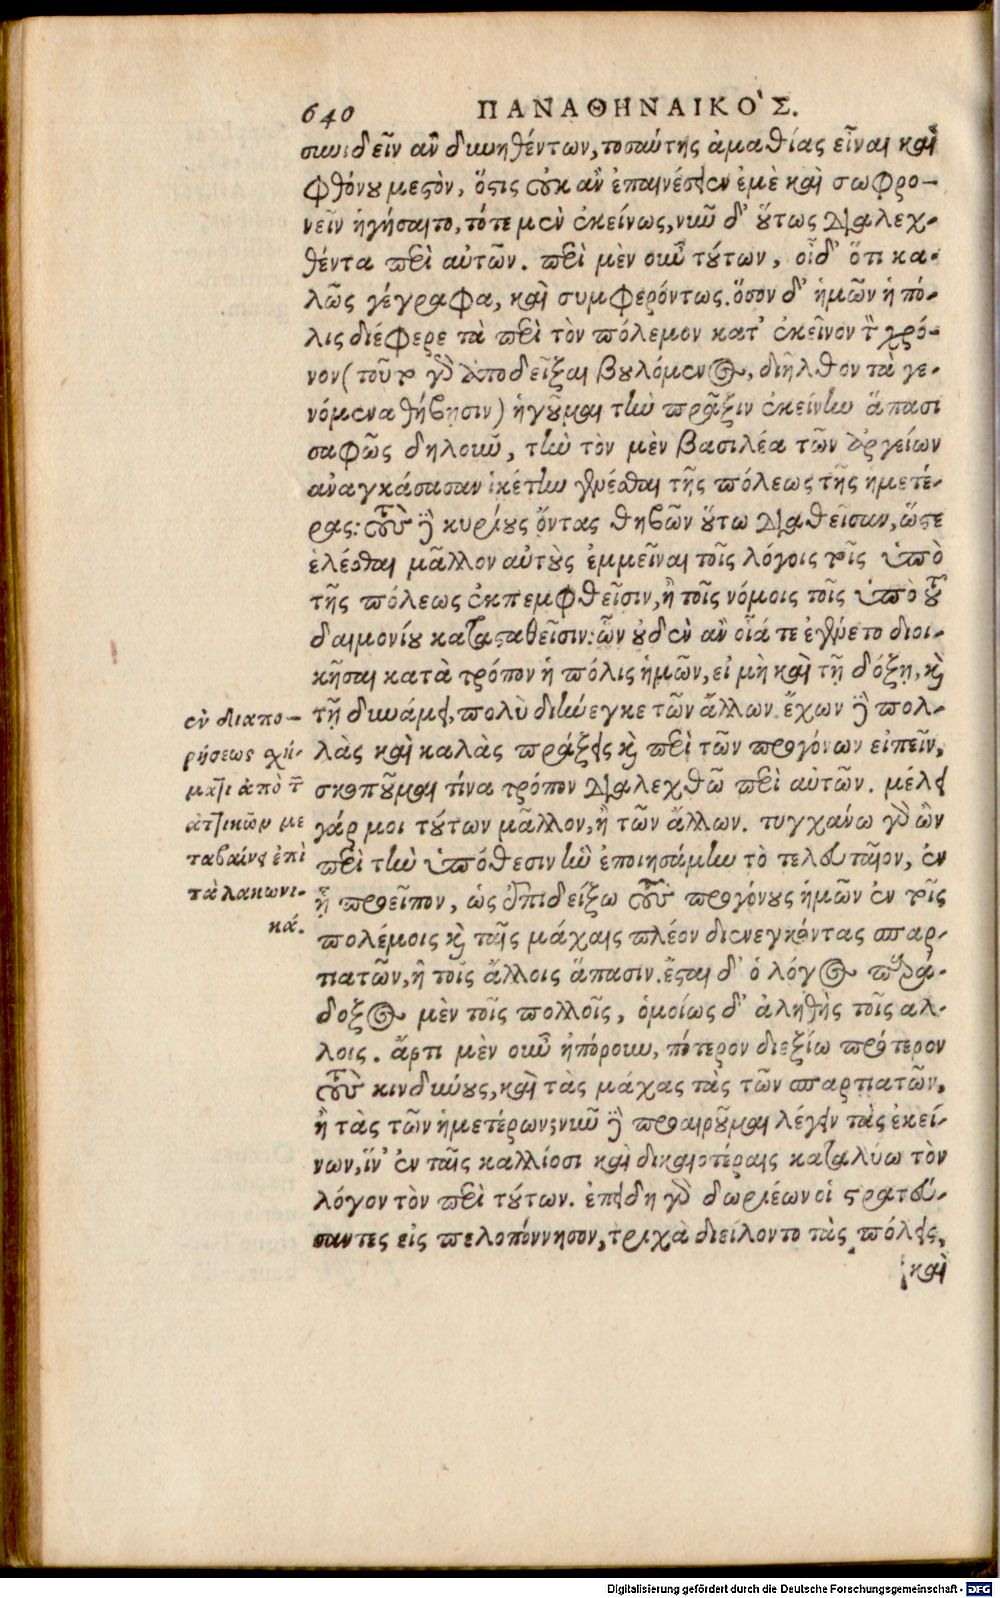 640 ΠΑΝΑΘΗΝΑΙΚΟ'Σ.
συνιδεῖν ἂν δυνηθέντων, τοσαύτης ἀμαθίας εἶναι καὶ
φθόνου μεστὸν, ὅστις οὐκ ἂν ἐπαινέσειεν ἐμὲ καὶ σωφρο-
νεῖν ἡγήσαιτο, τότε μὲν ἐκείνως, νῦν δ' οὕτως διαλεχ-
θέντα περὶ αὐτῶν. περὶ μὲν οὖν τούτων, οἶδ' ὅτι κα-
λῶς γέγραφα, καὶ συμφερόντως. ὅσον δ' ἡμῶν ἡ πό-
λις διέφερε τὰ περὶ τὸν πόλεμον κατ' ἐκεῖνον τὸν χρό-
νον (τοῦτο γὰρ ἀποδεῖξαι βουλόμενος, διῆλθον τὰ γε-
νόμενα θήβησιν) ἡγοῦμαι τὴν πρᾶξιν ἐκείνην ἅπασι
σαφῶς δηλοῦν, τὴν τὸν μὲν βασιλέα τῶν ἀργείων
ἀναγκάσασαν ἱκέτην γενέσθαι τῆς πόλεως τῆς ἡμετέ-
ρας: τοὺς δὲ κυρίους ὄντας θηβῶν οὕτω διαθεῖσαν, ὥστε
ἑλέσθαι μᾶλλον αὐτοὺς ἐμμεῖναι τοῖς λόγοις τοῖς ὑπὸ
τῆς πόλεως ἐκπεμφθεῖσιν, ἢ τοῖς νόμοις τοῖς ὑπὸ τοῦ
δαιμονίου κατασταθεῖσιν: ὧν οὐδὲν ἂν οἷά τε ἐγένετο διοι-
κῆσαι κατὰ τρόπον ἡ πόλις ἡμῶν, εἰ μὴ καὶ τῇ δόξῃ, καὶ
τῇ δυνάμει, πολὺ διήνεγκε τῶν ἄλλων. ἔχων δὲ πολ-
λὰς καὶ καλὰς πράξεις καὶ περὶ τῶν προγόνων εἰπεῖν,
σκοποῦμαι τίνα τρόπον διαλεχθῶ περὶ αὐτῶν. μέλει
γάρ μοι τούτων μᾶλλον, ἢ τῶν ἄλλων. τυγχάνω γὰρ ὢν
περὶ τὴν ὑπόθεσιν ἣν ἐποιησάμην τὸ τελευταῖον, ἐν
ᾗ προεῖπον, ὡς ἐπιδείξω τοὺς προγόνους ἡμῶν ἐν τοῖς
πολέμοις καὶ ταῖς μάχαις πλέον διενεγκόντας σπαρ-
τιατῶν, ἢ τοῖς ἄλλοις ἅπασιν. ἔσται δ' ὁ λόγος παρά-
δοξος μὲν τοῖς πολλοῖς, ὁμοίως δ' ἀληθὴς τοῖς ἄλ-
λοις. ἄρτι μὲν οὖν ἠπόρουν, πότερον διεξίω πρότερον
τοὺς κινδύνους, καὶ τὰς μάχας τὰς τῶν σπαρτιατῶν,
ἢ τὰς τῶν ἡμετέρων; νῦν δὲ προαιροῦμαι λέγειν τὰς ἐκεί-
νων, ἵν' ἐν ταῖς καλλίοσι καὶ δικαιοτέραις καταλύω τὸν
λόγον τὸν περὶ τούτων. ἐπειδὴ γὰρ δωριέων οἱ στρατεύ-
σαντες εἰς πελοπόννησον, τριχὰ διείλοντο τὰς πόλεις,
καὶ
ἐν διαπο-
ρήσεως σχή-
ματι ἀπὸ τῶν
ἀττικῶν με
ταβαίνει ἐπὶ
τὰ λακωνι-
κά.
Digitalisierung gefördert durch die Deutsche Forschungsgemeinschaft - DFG